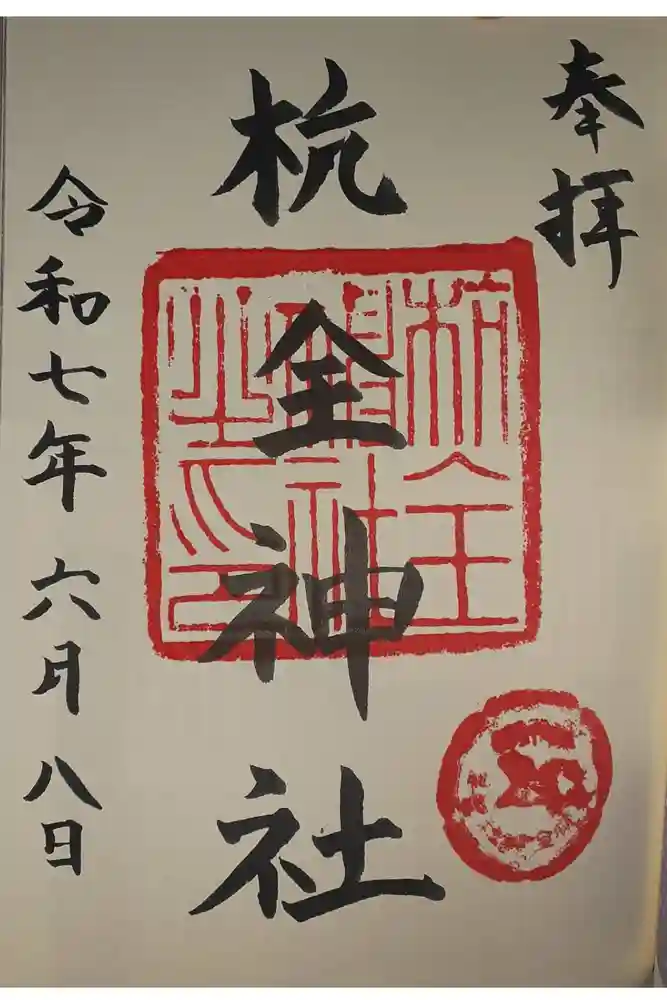 奉拝
杭全神社
杭全
神社
之印
令和七年六月八日